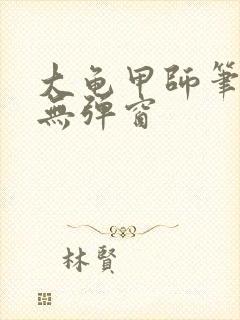 大龟甲師筆
無彈窗
林賢